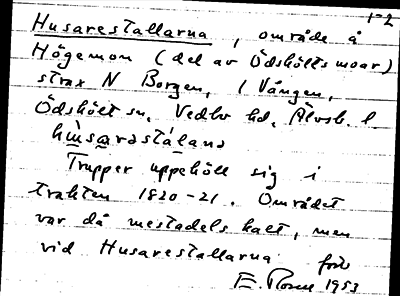 1-2
Husarestallarna, område å
Högemon (del av Ödskölts moar)
strax N Borgen, 1 Vången,
Ödskölt sn, Vedbo hd, Älvsb. l.
hùsarastálana
Trupper uppehöll sig i
trakten 1820-21. Området
var då mestadels kalt, men
vid Husarestallarna
E. 1953